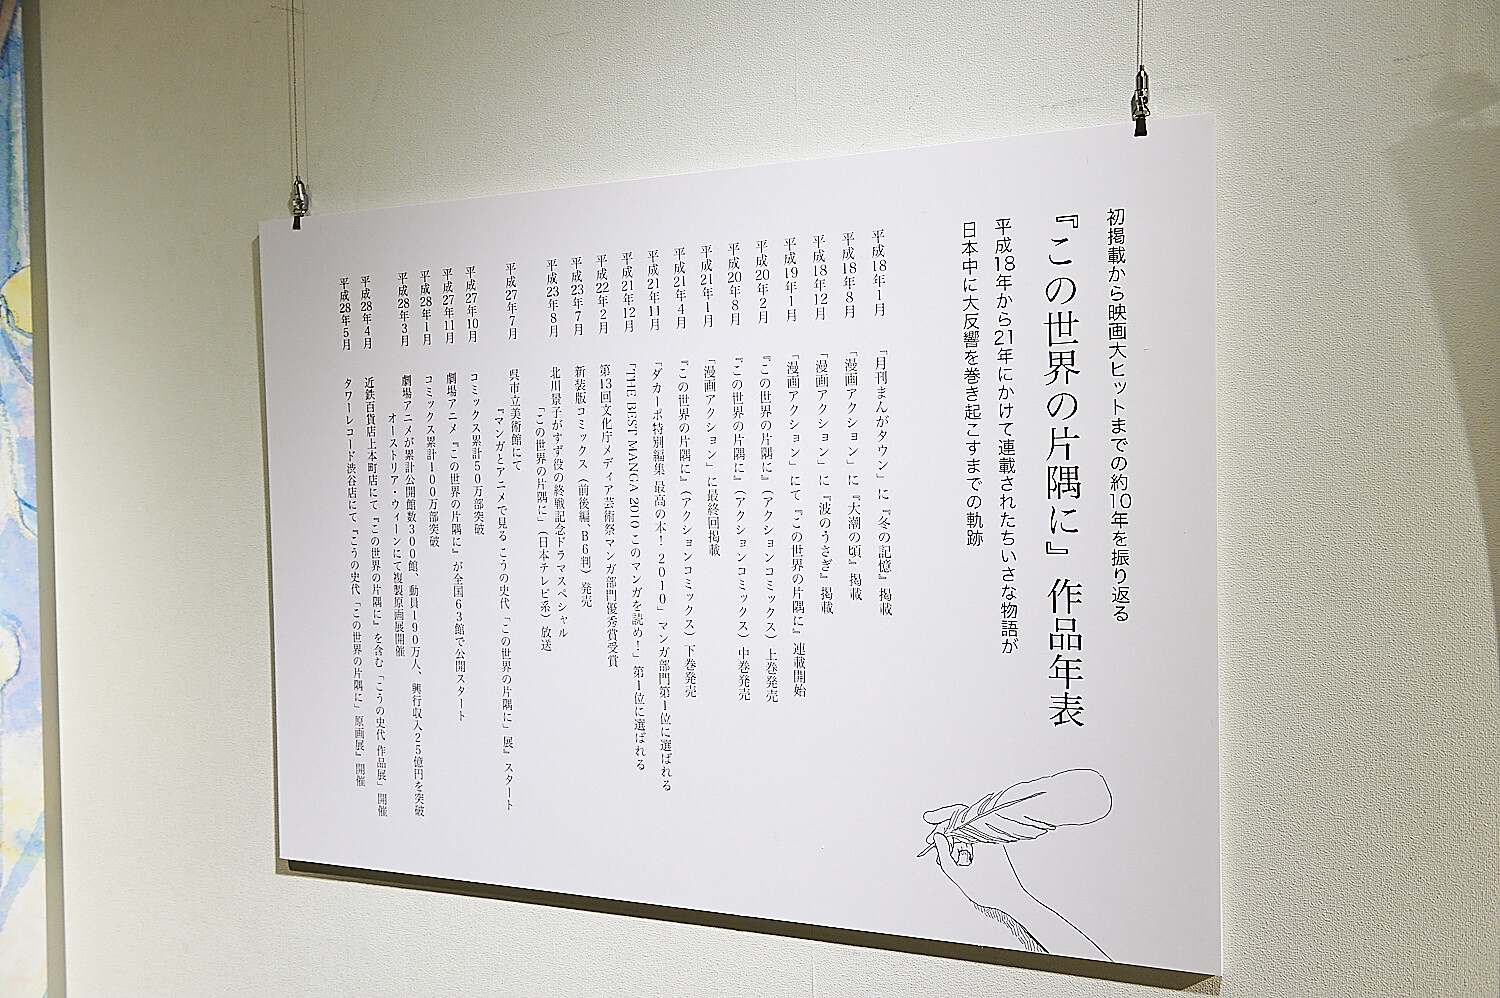 初掲載から映画大ヒットまでの約10年を振り返る
『この世界の片隅に』作品年表
平成18年から21年にかけて連載されたちいさな物語が
日本中に大反響を巻き起こすまでの軌跡
平成18年1月 「月刊まんがタウン」に『冬の記憶』掲載
平成18年8月 「漫画アクション」に『大潮の頃』掲載
平成18年12月 「漫画アクション」に『波のうさぎ』掲載
平成19年1月 「漫画アクション」にて『この世界の片隅に』連載開始
平成20年2月 『この世界の片隅に』(アクションコミックス)上巻発売
平成20年8月 『この世界の片隅に』(アクションコミックス)中巻発売
平成21年1月 「漫画アクション」に最終回掲載
平成21年4月 『この世界の片隅に』(アクションコミックス)下巻発売
平成21年11月 「ダカーポ特別編集 最高の本!2010」マンガ部門第1位に選ばれる
平成21年12月 「THE BEST MANGA 2010 このマンガを読め!」第1位に選ばれる
平成22年2月 第13回文化庁メディア芸術祭マンガ部門優秀賞受賞
平成23年7月 新装版コミックス(前後編、B6判)発売
平成23年8月 北川景子がすず役の終戦記念ドラマスペシャル
「この世界の片隅に」(日本テレビ系)放送
平成27年7月 呉市立美術館にて
『マンガとアニメで見る こうの史代「この世界の片隅に」展』スタート
平成27年10月 コミックス累計50万部突破
平成27年11月 劇場アニメ『この世界の片隅に』が全国63館で公開スタート
平成28年1月 コミックス累計100万部突破
平成28年3月 劇場アニメが累計公開館数300館、動員190万人、興行収入25億円を突破
オーストリア・ウィーンにて複製原画展開催
平成28年4月 近鉄百貨店上本町店にて『この世界の片隅に』を含む「こうの史代 作品展」開催
平成28年5月 タワーレコード渋谷店にて『こうの史代「この世界の片隅に」原画展』開催